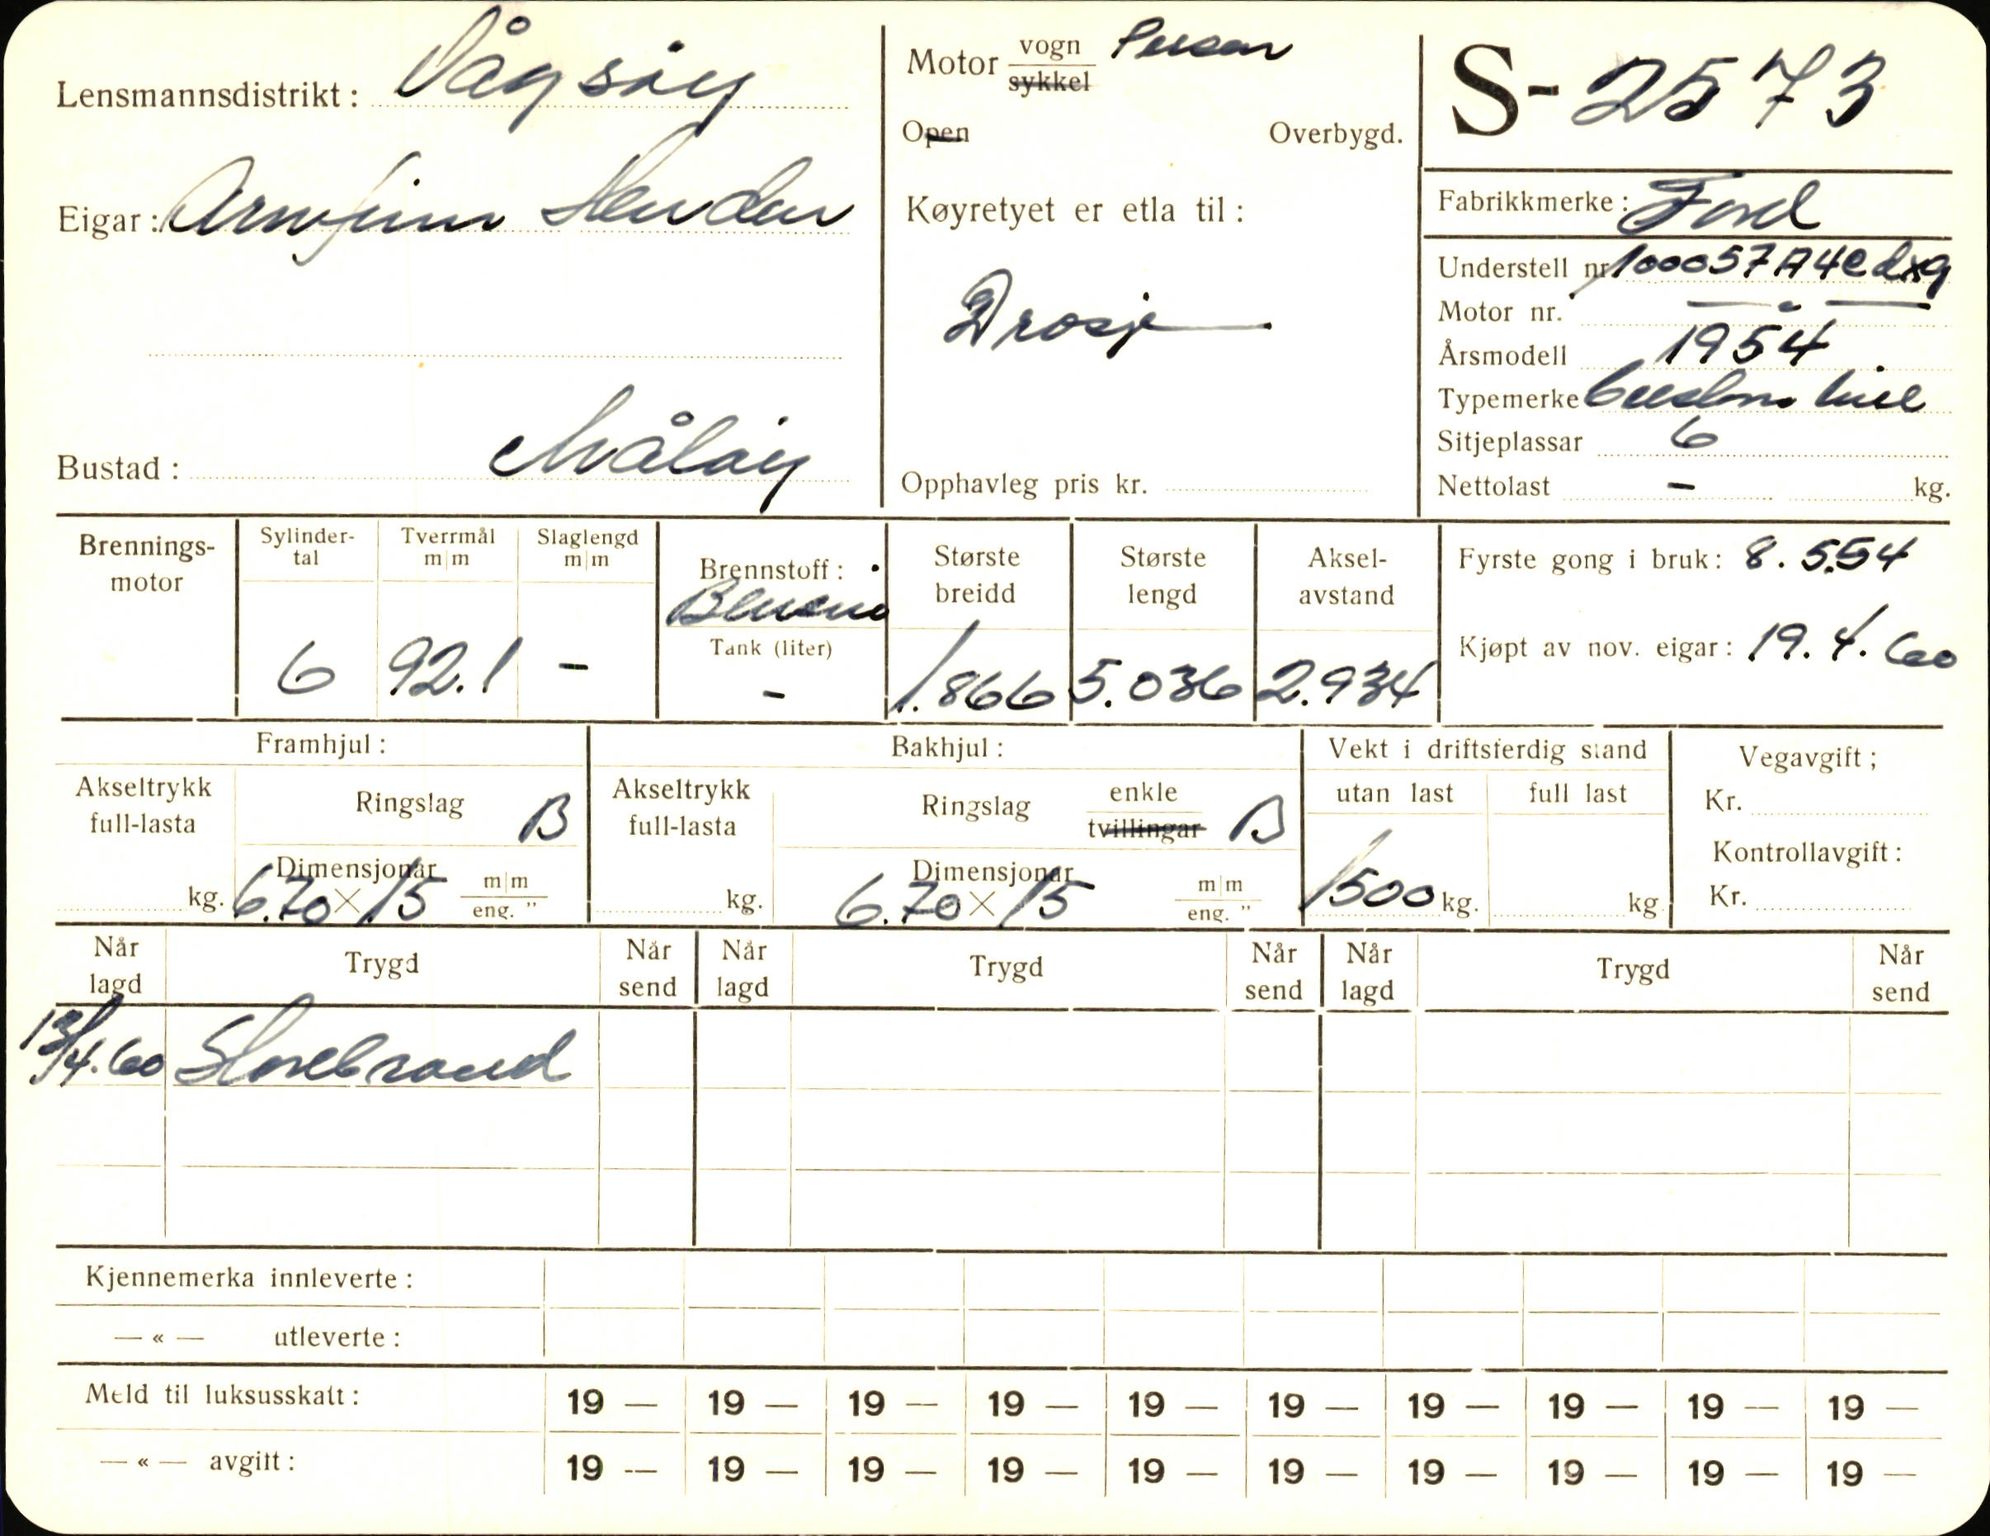 Lensmannsdistrikt: Vågsøy
Eigar: Arnfinn
Bustad: Måløy
Motor vogn Person
sykkel
Open Overbygd.
Køyretyet er etla til:
Drosje
Opphavleg pris kr.
S-2573
Fabrikkmerke: Ford
Understell nr 100057A4Cdxg
Motor nr. — " —
Årsmodell 1954
Typemerke line
Sitjeplassar 6
Nettolast - kg.
Brennings-
motor
Sylinder-
tal
6
Tverrmål
m/m
92.1
Slaglengd
m/m
-
Brennstoff:
Bensin
Tank (liter)
-
Største
breidd
1.866
Største
lengd
5.036
Aksel-
avstand
2.934
Fyrste gong i bruk: 8.5.54
Kjøpt av nov. eigar: 19.4.60
Framhjul:
Akseltrykk
full-lasta
kg.
Ringslag B
Dimensjonar
6.70 × 15 m/m
eng. "
Bakhjul:
Akseltrykk
full-lasta
kg.
Ringslag enkle B
tvillingar
Dimensjonar
6.70 × 15 m/m
eng. "
Vekt i driftsferdig stand
utan last full last
1500 kg. kg
Vegavgift;
Kr.
Kontrollavgift:
Kr.
Når
lagd
Trygd
Når
send
Når
lagd
Trygd
Når
send
Når
lagd
Trygd
Når
send
13/4.60 Storebrand
Kjennemerka innleverte:
— « — utleverte:
Meld til luksusskatt: 19 — 19 — 19 — 19 — 19 — 19 — 19 — 19 — 19 — 19 —
— « — avgift: 19 — 19 — 19 — 19 — 19 — 19 — 19 — 19 — 19 — 19 —